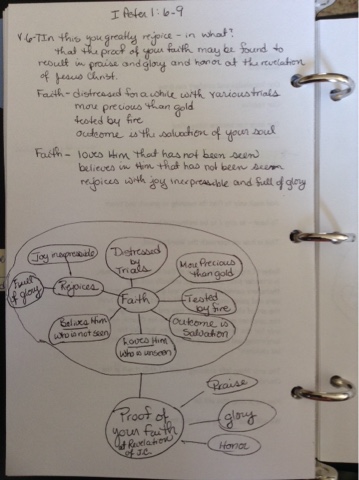 I Peter 1:6-9
V.6-7 In this you greatly rejoice - in what?
that the proof of your faith may be found to
result in praise and glory and honor at the revelation
of Jesus Christ.
Faith - distressed for a while with various trials
more precious than gold
tested by fire
outcome is the salvation of your soul
Faith - loves Him that has not been seen
believes in Him that has not been seen
rejoices with joy inexpressible and full of glory
Joy inexpressible
Full
of glory
Rejoices
Distressed
by
Trials
More Precious
than gold
Faith
Tested
by fire
Outcome is
Salvation
Belives Him
who is not seen
Loves Him
who is unseen
Proof of
your Faith
at Revelation
of J.C.
Praise
glory
Honor